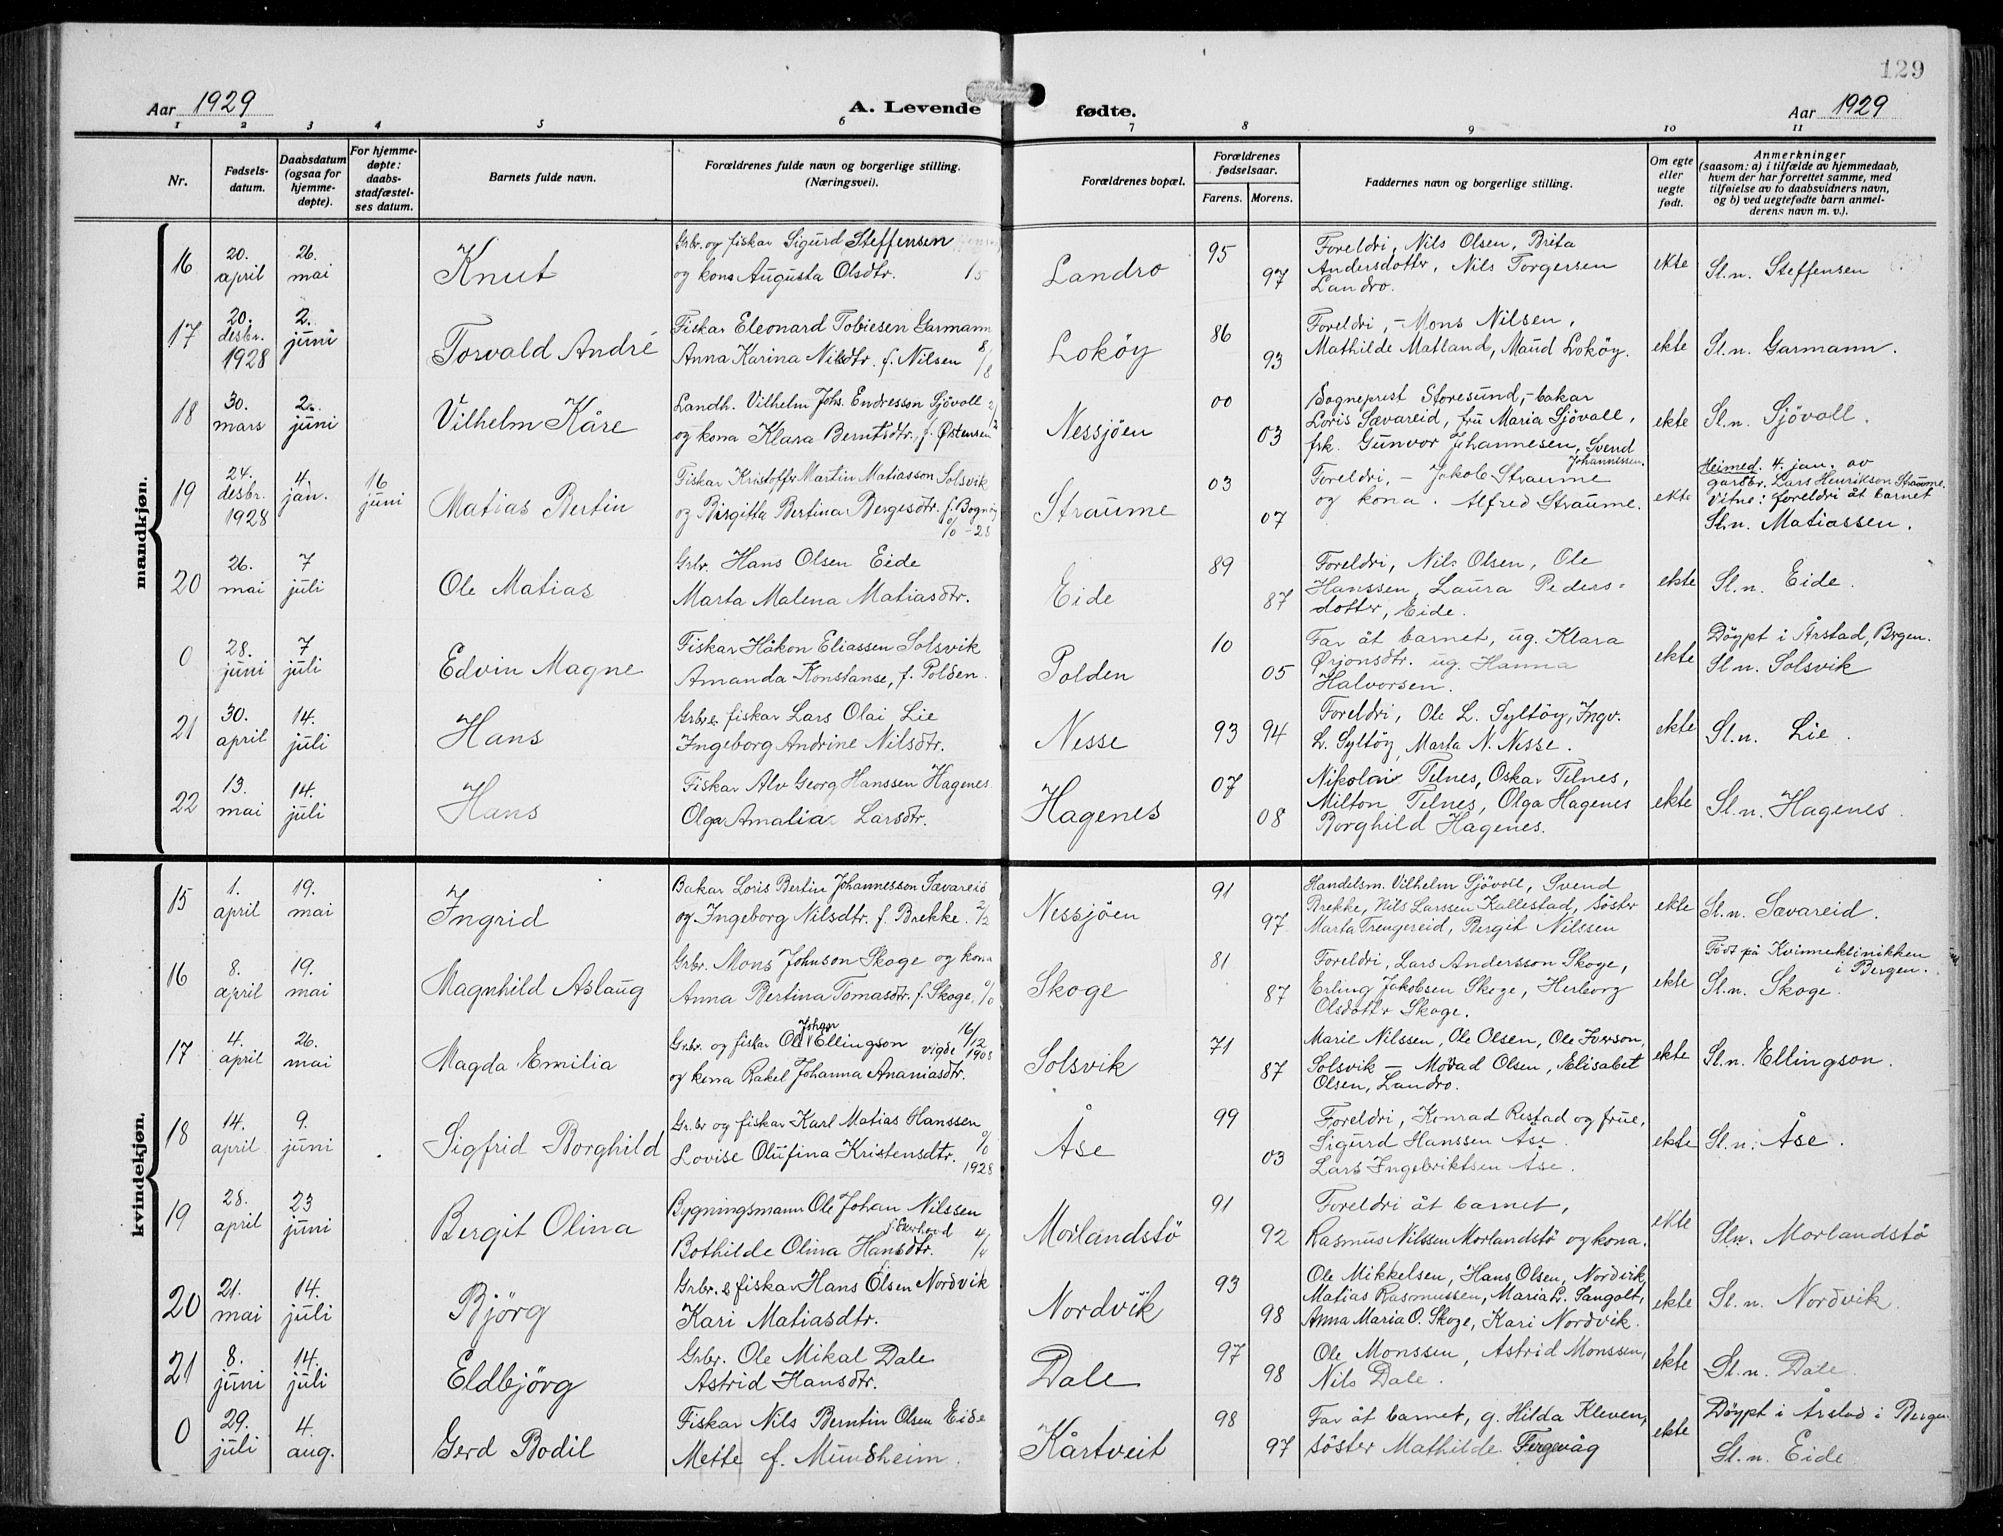 129
Aar 1929
A. Levende
fødte.
Aar 1929
1 2 3 4 5 6 7 8 9 10 11
Nr.
Fødsels-
datum.
Daabsdatum
(ogsaa for
hjemme-
døpte).
For hjemme-
døpte:
daabs-
stadfæstel-
ses datum.
Barnets fulde navn.
Forældrenes fulde navn og borgerlige stilling.
(Næringsvei).
Forældrenes bopæl.
Forældrenes
fødselsaar.
Farens. Morens.
Faddernes navn og borgerlige stilling.
Om egte
eller
uegte
født.
Anmerkninger
(saasom: a) i tilfælde av hjemmedaab,
hvem der har forrettet samme, med
tilføielse av to daabsvidners navn,
og b) ved uegtefødte barn anmel-
derens navn m. v.).
mandkjøn.
16
20.
april
26.
mai
Knut
Grbr. og fiskar Sigurd Steffensen
og kona Augusta Olsdtr.
Landro
95
97
Foreldri, Nils Olsen, Brita
Andersdottr, Nils Torgersen
Landro.
ekte
Sl.n. Steffensen
17
20.
desbr.
1928
2.
juni
Torvald André
Fiskar Eleonard Tobiesen Garmann
Anna Karina Nilsdtr. f. Nilsen 8/8
Lokøy
86
93
Foreldri, – Mons Nilsen,
Mathilde Matland, Maud Lokøy.
ekte
Sl.n. Garmann.
18
30.
mars
2.
juni
Vilhelm Kåre
Landh. Vilhelm Johs. Endresson Sjövoll 2/2
og kona Klara Berntsdtr. f. Østensen
Nessjöen
00
03
Sogneprest Storesund, – bakar
Loris Savareid, fru Maria Sjövoll,
frk. Gunvor Johannesen, Svend
Johannessen.
ekte
Sl.n. Sjövoll.
19
24.
desbr.
1928
4.
jan.
16
juni
Matias Bertin
Fiskar Kristoffer Martin Matiasson Solsvik
og Birgitta Bertina Bergesdtr. f. Bognøy
0/0 - 28
Straume
03
07
Foreldri, – Jakob Straume
og kona. Alfred Straume.
ekte
Heimed. 4. jan. av
gardbr. Lars Henrikson Straume.
Vitne: foreldri åt barnet
Sl.n. Matiassen.
20
26.
mai
7
juli
Ole Matias
Grbr. Hans Olsen Eide
Marta Malena Matiasdtr.
Eide
89
87
Foreldri, Nils Olsen, Ole
Hanssen, Laura Peders-
dotter, Eide.
ekte
Sl.n. Eide.
0
28.
juni
7
juli
Edvin Magne
Fiskar Håkon Eliassen Solsvik
Amanda Konstanse, f. Polden.
Polden
10
05
Far åt barnet, ug. Klara
Ørjonsdtr. ug. Hanna
Halvorsen.
ekte
Döypt i Årstad, Bergen.
Sl.n. Solsvik
21
30.
april
14.
juli
Hans
Grbr & fiskar Lars Olai Lie
Ingeborg Andrine Nilsdtr.
Nesse
93 94
Foreldri, Ole L. Syltöy, Ingv.
L. Syltöy, Marta N. Nesse.
ekte
Sl.n. Lie.
22
13.
mai
14.
juli
Hans
Fiskar Alv Georg Hanssen Hagenes
Olga Amalia Larsdtr.
Hagenes
07
08
Nikolai Telnes, Oskar Telnes,
Milton Telnes, Olga Hagenes
Borghild Hagenes.
ekte
Sl.n. Hagenes.
kvindekjøn.
15
1.
april
19.
mai
Ingrid
Bakar Loris Bertin Johannesson Sævareid
og Ingeborg Nilsdtr. f. Brekke. 2/2
Nessjöen
91
97
Handelsm. Vilhelm Sjövoll, Svend
Brekke, Nils Larssen Kallestad, söster
Marta Trengereid, Bergit Nilssen
ekte
Sl.n. Sævareid.
16
8.
april
19.
mai
Magnhild Aslaug
Grbr. Mons Johnson Skoge og kona
Anna Bertina Tomasdtr. f. Skoge, 0/0
Skoge
81
87
Foreldri, Lars Andersson Skoge,
Erling Jakobsen Skoge, Herborg
Olsdottr Skoge.
ekte
Födt på Kvinneklinikken
i Bergen.
Sl.n. Skoge.
17
4.
april
26.
mai
Magda Emilia
Johan
Grbr. og fiskar Ole Ellingson vigde 16/12 1908
og kona Rakel Johanna Ananiasdtr.
Solsvik
71
87
Marie Nilssen, Ole Olsen, Ole Iverson,
Solsvik – Movad Olsen, Elisabet
Olsen, Landro.
ekte
Sl.n. Ellingson.
18
14.
april
9.
juni
Sigfrid Borghild
Grbr og fiskar Karl Matias Hanssen
Lovise Olufina Kristensdtr. 0/0
1928
Åse
99
03
Foreldri, Konrad Restad og frue,
Sigurd Hanssen Åse
Lars Ingebriktsen Åse.
ekte
Sl.n. Åse.
19
28.
april
23
juni
Bergit Olina
Bygningsmann Ole Johan Nilssen
Bothilde Olina Hansdtr. 4/4
Morlandstö
91
92
Foreldri åt barnet,
Rasmus Nilssen Morlandstö og kona.
ekte
Sl.n. Morlandstö
20
21.
mai
14.
juli
Björg
Grbr. & fiskar Hans Olsen Nordvik
Kari Matiasdtr.
Nordvik
93
98
Ole Mikkelsen, Hans Olsen, Nordvik,
Matias Rasmussen, Maria L. Sangolt,
Anna Maria O. Skoge, Kari Nordvik.
ekte
Sl.n. Nordvik.
21
8.
juni
14.
juli
Eldbjörg
Grbr. Ole Mikal Dale
Astrid Hansdtr.
Dale
97
98
Ole Monssen, Astrid Monssen,
Nils Dale.
ekte
Sl.n. Dale.
0
29.
juli
4.
aug.
Gerd Bodil
Fiskar Nils Berntin Olsen Eide
Mette f. Mundheim.
Kårtveit
98
97
Far åt barnet, g. Hilda Kleven,
söster Mathilde Fergevåg
ekte
Döypt i Årstad i Bergen
Sl.n. Eide